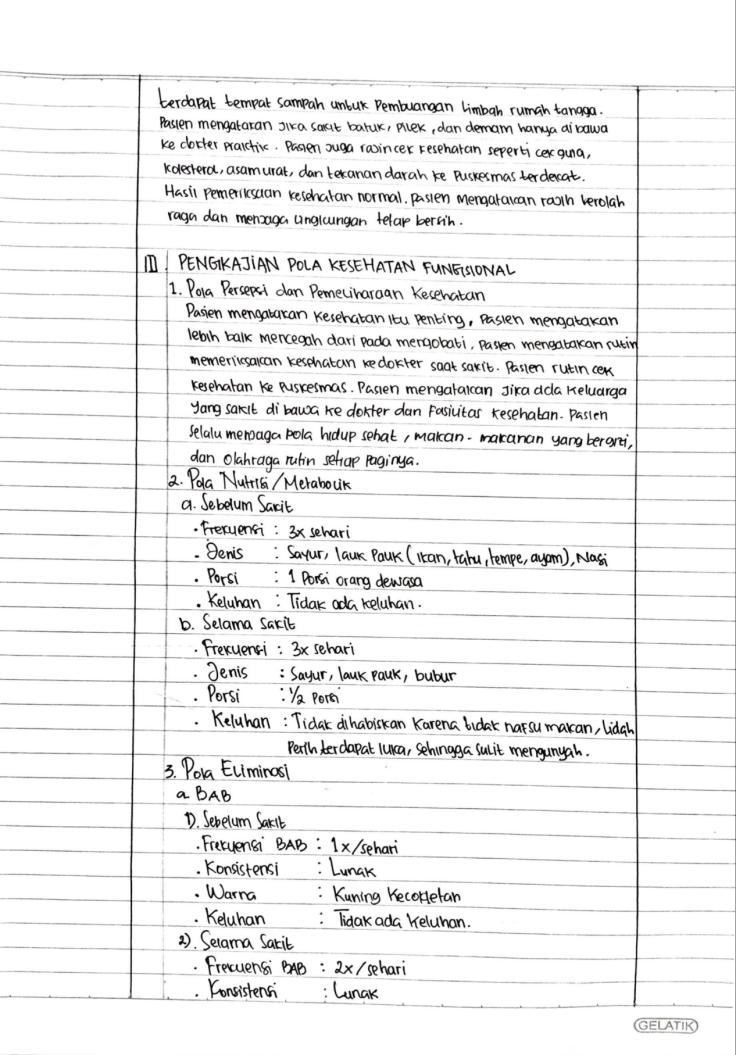 terdapat tempat sampah untuk Pembuangan Limbah rumah tangga.
Pasien mengatakan jika sakit batuk, pilek, dan demam hanya di bawa
ke dokter praktik. Pasien juga rajin cek kesehatan seperti cek gula,
kolesterol, asam urat, dan tekanan darah ke Puskesmas terdekat.
Hasil Pemeriksaan kesehatan normal. Pasien mengatakan rajin berolah
raga dan menjaga lingkungan tetap bersih.
III. PENGKAJIAN POLA KESEHATAN FUNGSIONAL
1. Pola Persepsi dan Pemeliharaan Kesehatan
Pasien mengatakan kesehatan itu penting, Pasien mengatakan
lebih baik mencegah dari pada mengobati, pasien mengatakan rutin
memeriksakan kesehatan ke dokter saat sakit. Pasien rutin cek
kesehatan ke Puskesmas. Pasien mengatakan jika ada keluarga
yang sakit di bawa ke dokter dan Fasilitas kesehatan. Pasien
selalu menjaga pola hidup sehat, makan-makanan yang bergizi,
dan olahraga rutin setiap paginya.
2. Pola Nutrisi/Metabolik
a. Sebelum Sakit
• Frekuensi : 3x sehari
• Jenis : Sayur, lauk pauk (ikan, tahu, tempe, ayam), Nasi
• Porsi : 1 Porsi orang dewasa
• Keluhan : Tidak ada keluhan.
b. Selama Sakit
• Frekuensi : 3x sehari
• Jenis : Sayur, lauk pauk, bubur
• Porsi : 1/2 Porsi
• Keluhan : Tidak dihabiskan karena tidak nafsu makan, lidah
Perih terdapat luka, sehingga sulit mengunyah.
3. Pola Eliminasi
a. BAB
1). Sebelum Sakit
• Frekuensi BAB : 1x/sehari
• Konsistensi : Lunak
• Warna : Kuning Kecokletan
• Keluhan : Tidak ada keluhan.
2). Selama Sakit
• Frekuensi BAB : 2x/sehari
• Konsistensi : Lunak
GELATIK